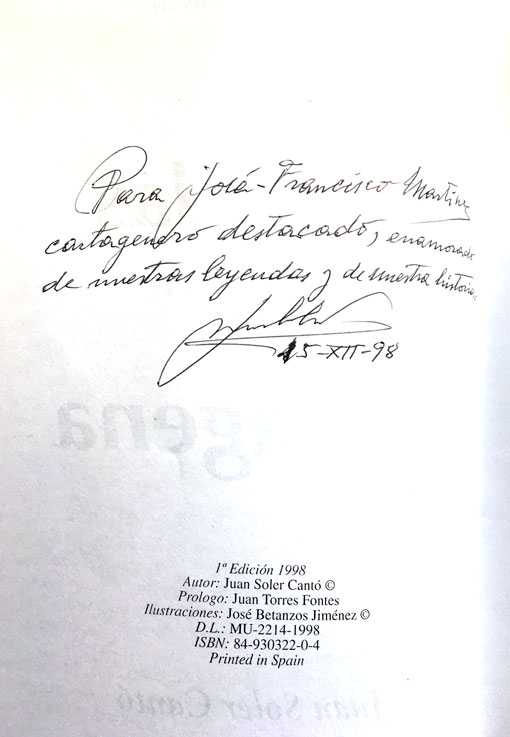 Para José-Francisco Martínez
cartagenero destacado, enamorado
de nuestras leyendas y de nuestra historia
15-XII-98
1ª Edición 1998
Autor: Juan Soler Cantó ©
Prologo: Juan Torres Fontes
Ilustraciones: José Betanzos Jiménez ©
D.L.: MU-2214-1998
ISBN: 84-930322-0-4
Printed in Spain
gena
Juan Soler Cantó